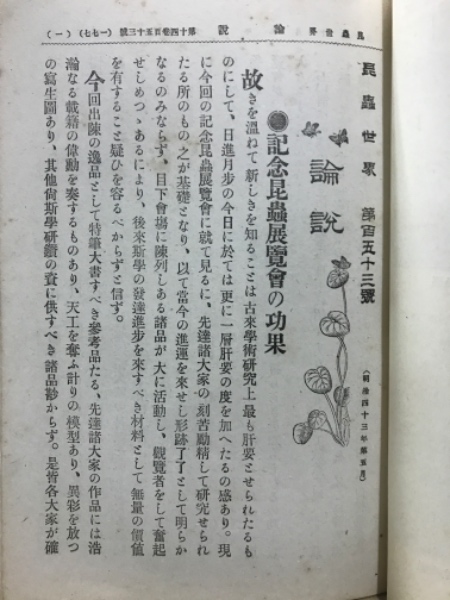 昆蟲世界 論說 第十四卷百五十三號 (一七七) (一)
昆蟲世界 第百五十三號
(明治四十三年第五月)
論說
●記念昆蟲展覽會の功果
故きを溫ねて新しきを知ることは古來學術研究上最も肝要とせられたるも
のにして、日進月步の今日に於ては更に一層肝要の度を加へたるの感あり。現
に今回の記念昆蟲展覽會に就て見るに、先達諸大家の刻苦勵精して研究せられ
たる所のもの之が基礎となり、以て當今の進運を來せし形跡了了として明らか
なるのみならず、目下會場に陳列しある諸品が大に活動し、觀覽者をして奮起
せしめつゝあるにより、後來斯學の發達進步を來すべき材料として無量の價値
を有すること疑ひを容るべからずと信ず。
今回出陳の逸品として特筆大書すべき參考品たる、先達諸大家の作品には浩
瀚なる載籍の偉動を奏するものあり、天工を奪ふ計りの模型あり、異彩を放つ
の寫生圖あり、其他尙斯學硏鑽の資に供すべき諸品尠からず。是皆各大家が確